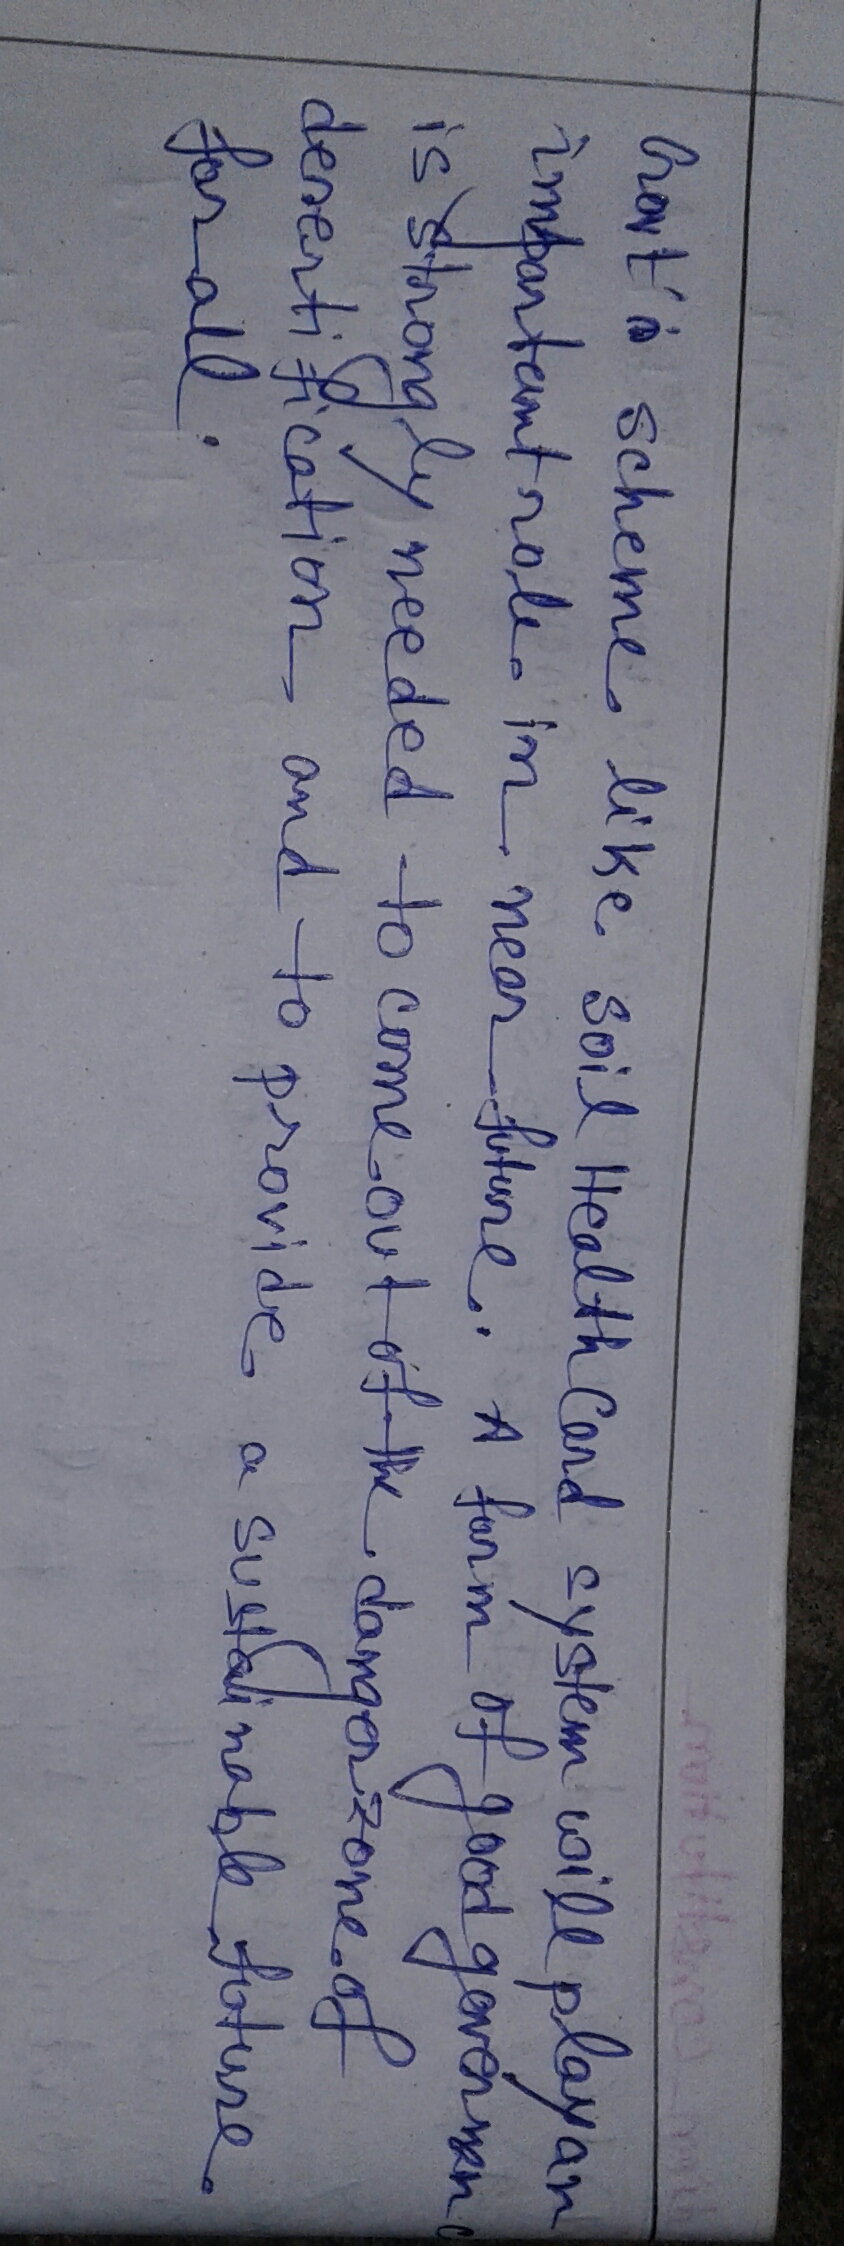 Govt's scheme like Soil Health Card system will play an
important role in near future. A form of good governanc
is strongly needed to come out of the danger zone of
desertification and to provide a sustainable future
for all.